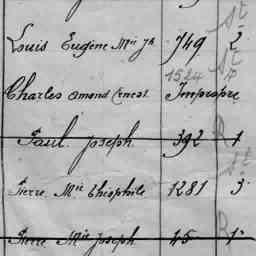 St
Louis Eugène Mie Jh 749 2
1524 St
Charles Amond Ernest Impropre
Paul Joseph 392 1
St
Pierre Mie Théophile 1281 3
R
Pierre Mie Joseph 45 1